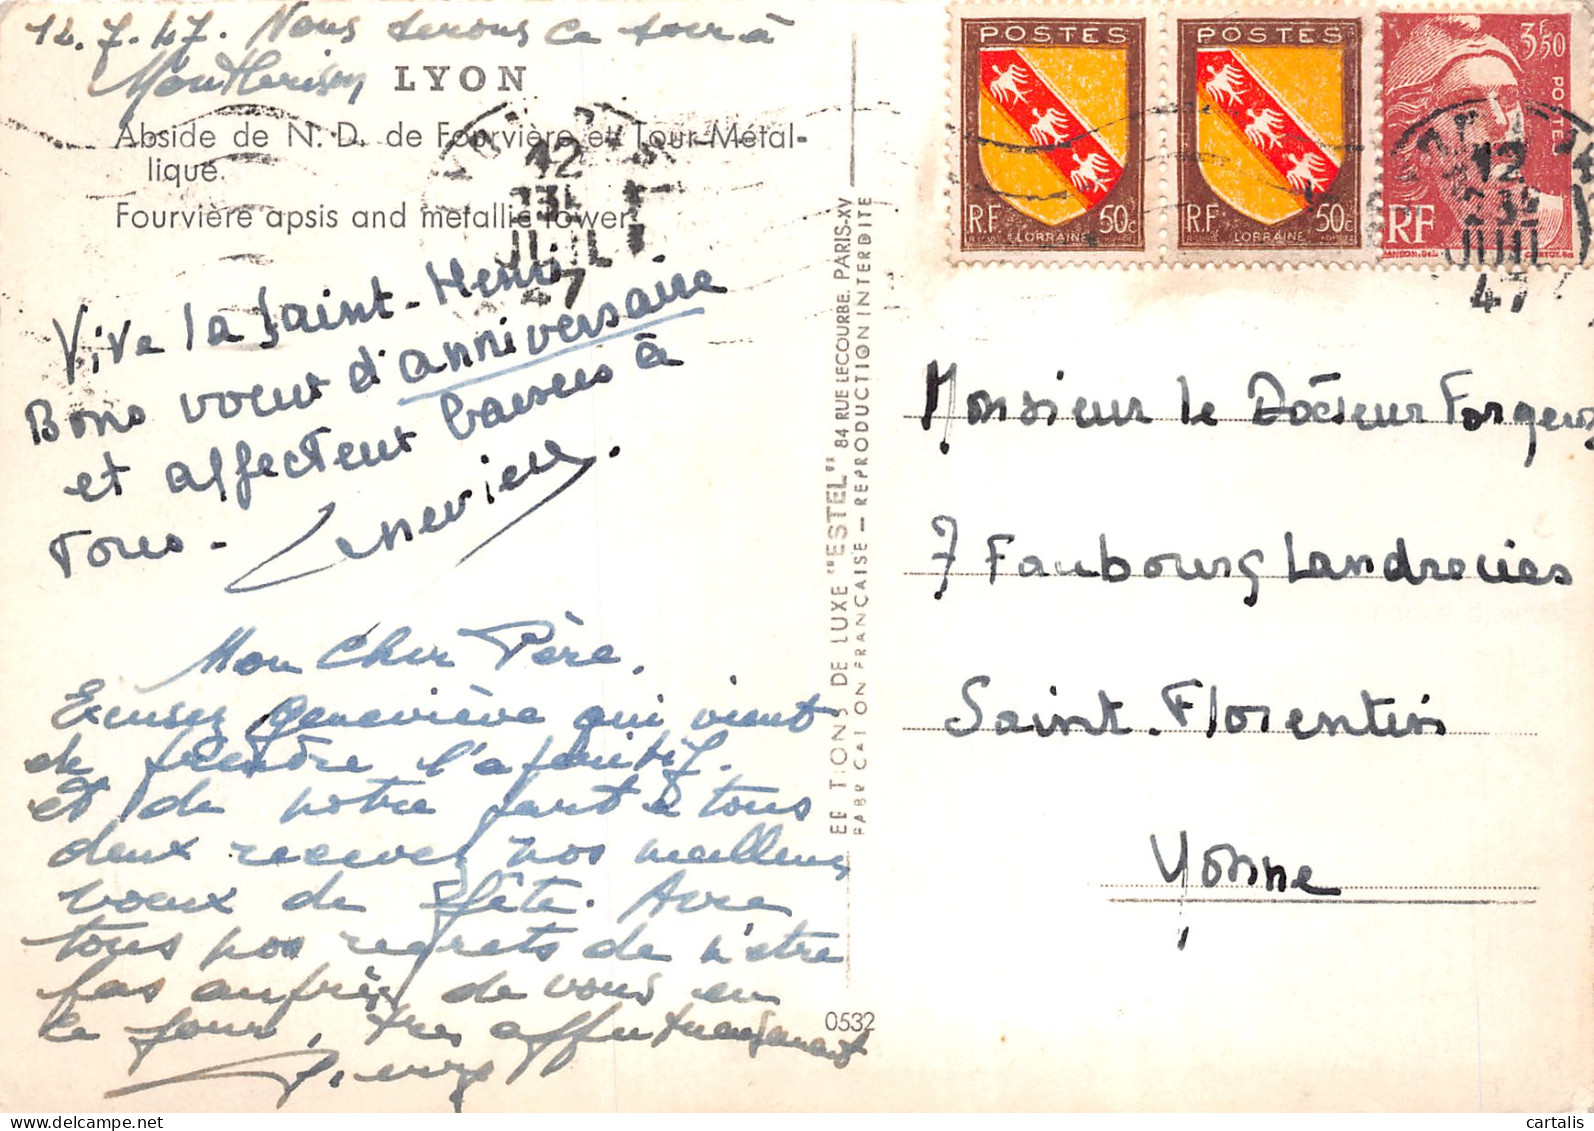 12.7.47. Nous serons ce soir à
Montbrison
LYON
Abside de N. D. de Fourvière et Tour Métal-
lique.
Fourvière apsis and metallic tower
12
JUIL
47
Vive la Saint-Henri
Bons voeux d'anniversaire
et affectueux baisers à
Tous - Geneviève.
Mon Cher Père.
Excusez Geneviève qui vient
de prendre l'apéritif.
et de notre part à tous
deux recevez nos meilleurs
voeux de fête. Avec
tous nos regrets de n'être
pas auprès de vous en
ce jour, très affectueusement
Pierre
EDITIONS DE LUXE "ESTEL" 84 RUE LECOURBE. PARIS-XV
FABRICATION FRANCAISE - REPRODUCTION INTERDITE
0532
POSTES
RF 50c
LORRAINE
POSTES
RF 50c
LORRAINE
3F50
POSTES
RF
GANDON.DEL.
CORTOT.SC
12
JUIL
47
Monsieur le Docteur Forgeros
7 Faubourg Landrecies
Saint-Florentin
Yonne
cartalis
www.delcampe.net